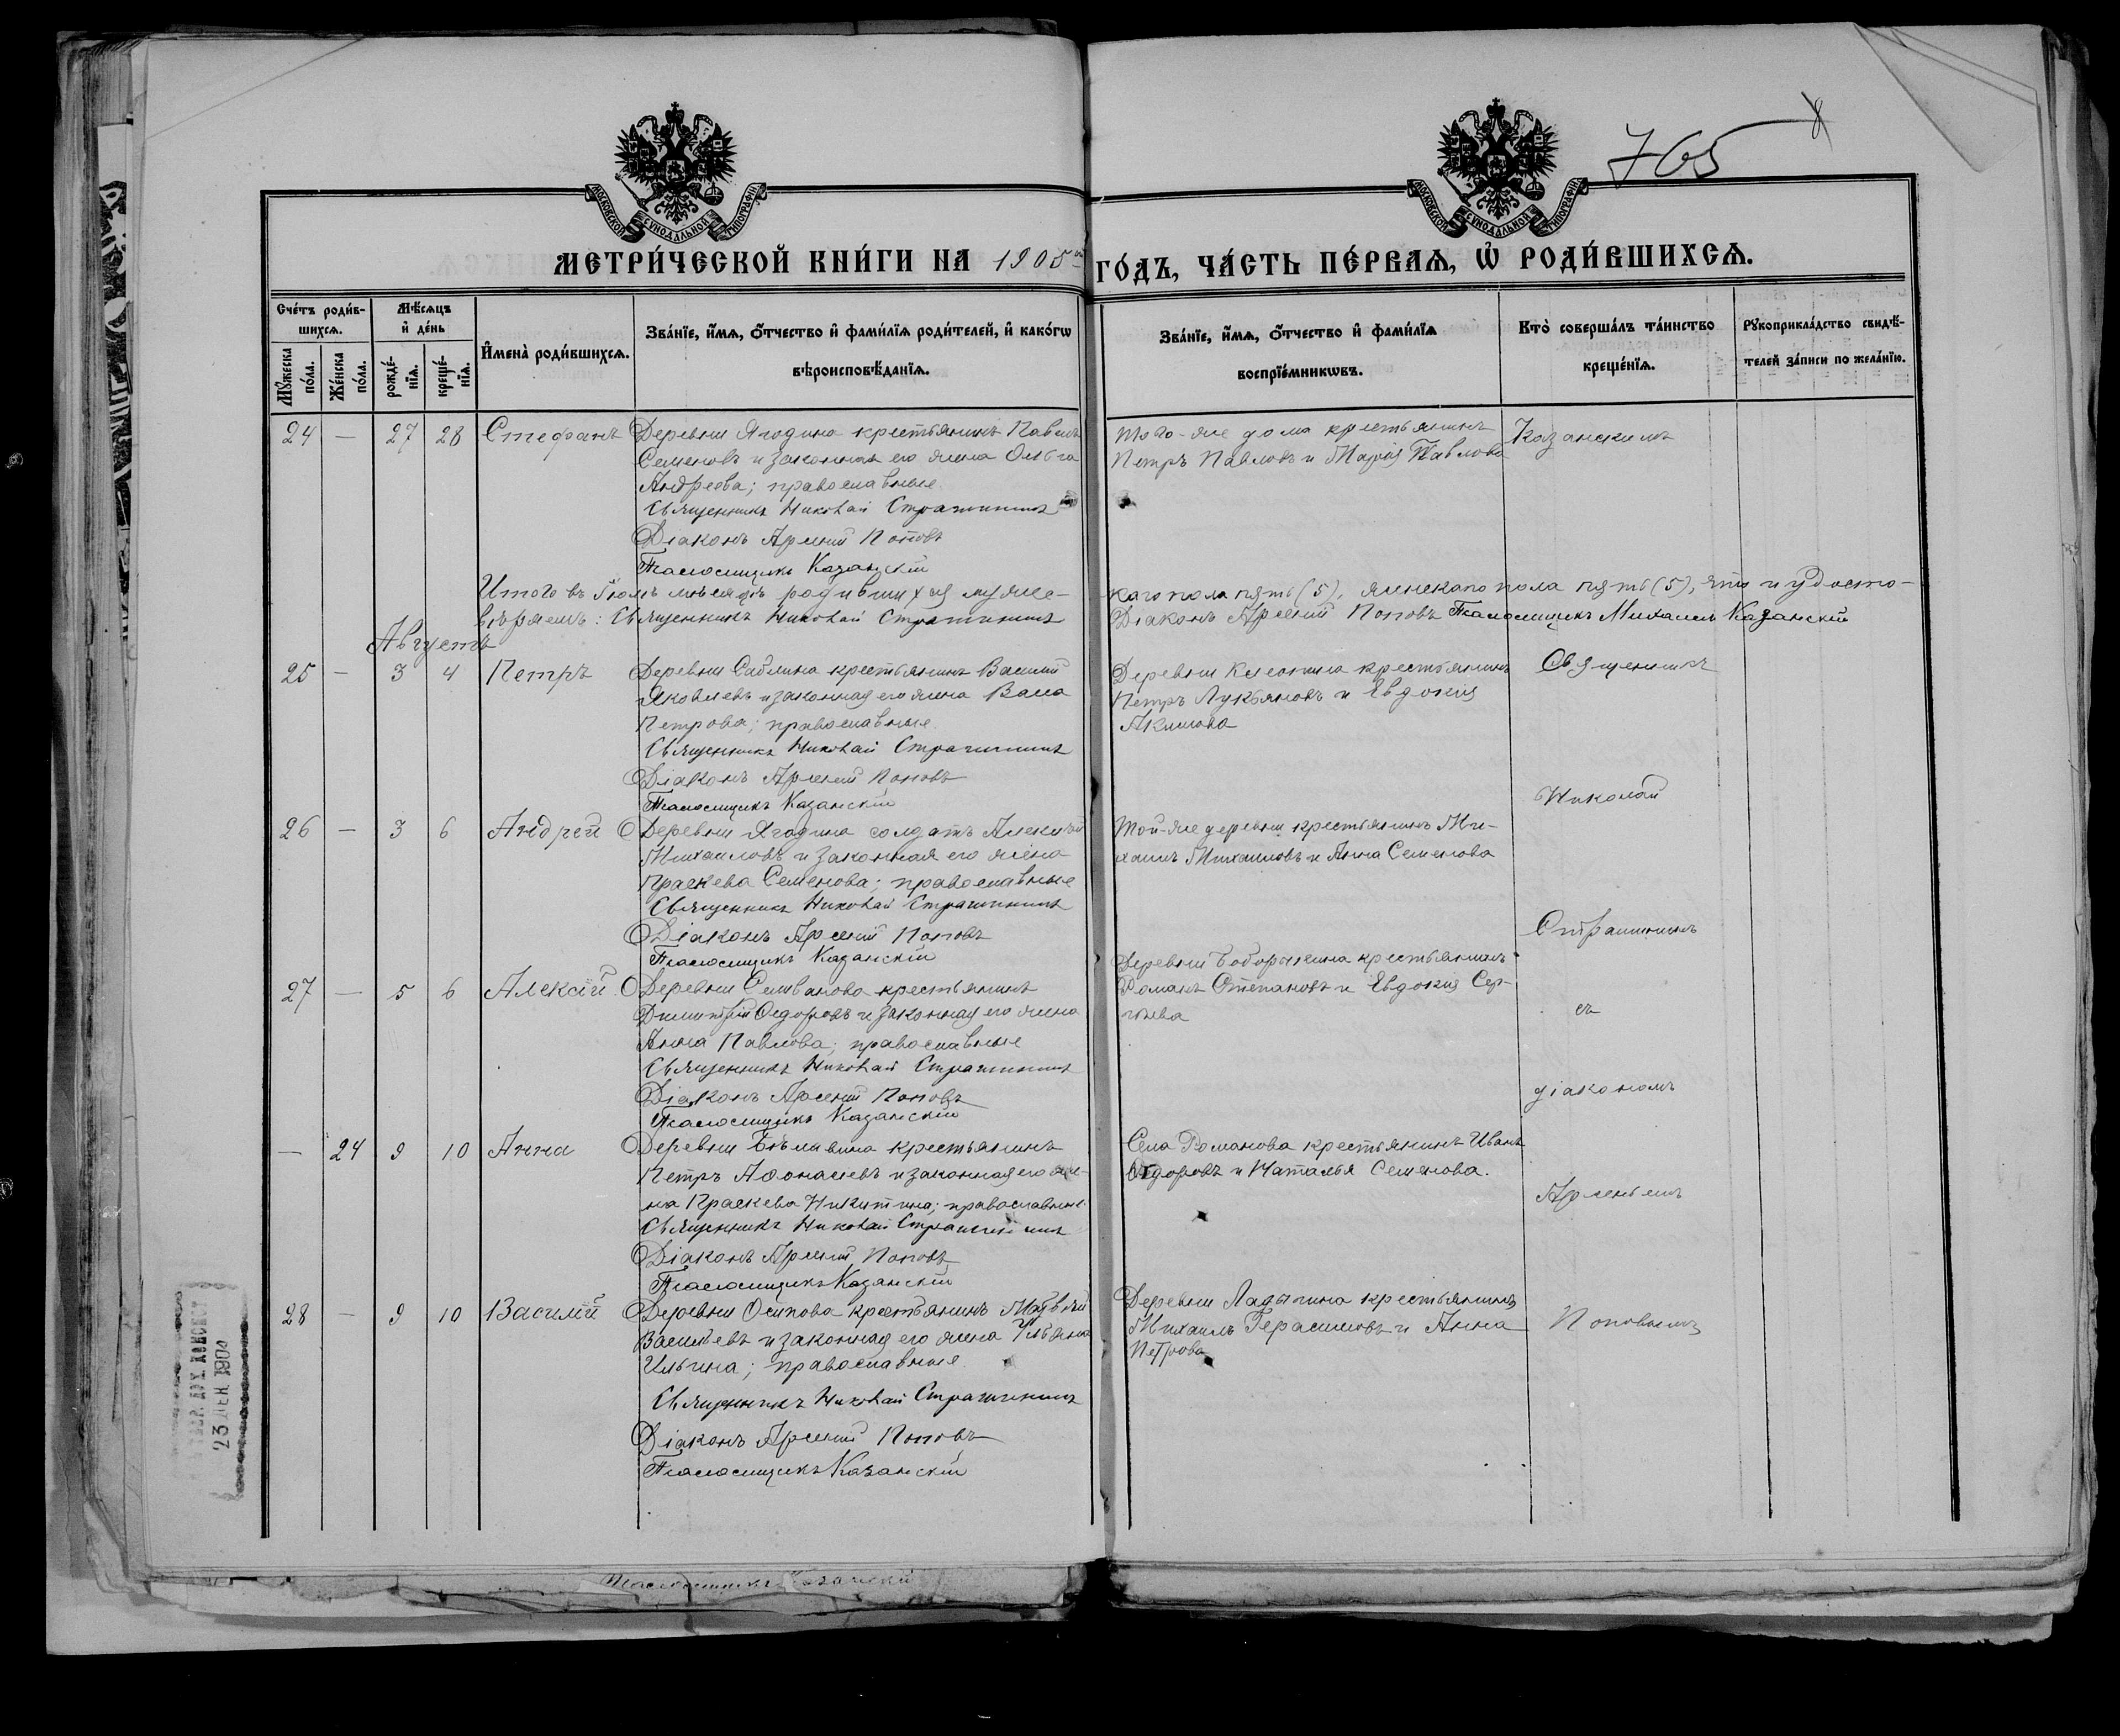 765
МОСКОВСКОЙ СѴНОДАЛЬНОЙ ТИПОГРАФІИ
МОСКОВСКОЙ СѴНОДАЛЬНОЙ ТИПОГРАФІИ
МЕТРИ́ЧЕСКОЙ КНИ́ГИ НА 1905й ГО́ДЪ, ЧА́СТЬ ПЕ́РВАѦ, Ѽ РОДИ́ВШИХСѦ.
Сче́тъ роди́в-
шихсѧ.
Мꙋ́жеска по́ла.
Же́нска по́ла.
Мѣ́сѧцъ
и҆ де́нь
рожде́-
нїѧ.
креще́-
нїѧ.
И҆мена̀ роди́вшихсѧ.
Зва́нїе, и҆́мѧ, ѻ҆́тчество и҆ фами́лїѧ роди́телей, и҆ како́гѡ
вѣроисповѣ́данїѧ.
Зва́нїе, и҆́мѧ, ѻ҆́тчество и҆ фами́лїѧ
воспрїе́мникѡвъ.
Кто̀ соверша́лъ та́инство
креще́нїѧ.
Рꙋкоприкла́дство свидѣ́-
телей за́писи по жела́нїю.
24 — 27 28 Стефанъ Деревни Ягодина крестьянинъ Павелъ
Семеновъ и законная его жена Ольга
Андреева; православные.
Священникъ Николай Страшининъ
Діаконъ Арсеній Поповъ
Псаломщикъ Казанскій
Того-же дома крестьянинъ
Петръ Павловъ и Марія Павлова
Казанскимъ
Итого въ Іюлѣ мѣсяцѣ родившихся муже-
скаго пола пять (5), женскаго пола пять (5), что и удосто-
вѣряемъ: Священникъ Николай Страшининъ
Діаконъ Арсеній Поповъ Псаломщикъ Михаилъ Казанскій
Августъ
25 — 3 4 Петръ Деревни Саблина крестьянинъ Василій
Яковлевъ и законная его жена Васса
Петрова; православные.
Священникъ Николай Страшининъ
Діаконъ Арсеній Поповъ
Псаломщикъ Казанскій
Деревни Клеопина крестьянинъ
Петръ Лукьяновъ и Евдокія
Акимова
Священникъ
Николай
26 — 3 6 Андрей Деревни Ягодина солдатъ Алексѣй
Михаиловъ и законная его жена
Праскева Семенова; православные
Священникъ Николай Страшининъ
Діаконъ Арсеній Поповъ
Псаломщикъ Казанскій
Той-же деревни крестьянинъ Ми-
хаилъ Михаиловъ и Анна Семенова
Страшининъ
27 — 5 6 Алексій Деревни Селиваново крестьянинъ
Димитрій Ѳедоровъ и законная его жена
Анна Павлова; православные
Священникъ Николай Страшининъ
Діаконъ Арсеній Поповъ
Псаломщикъ Казанскій
Деревни Боборыкина крестьянинъ
Романъ Степановъ и Евдокія Сер-
гѣева
съ
діакономъ
— 24 9 10 Анна Деревни крестьянинъ
Петръ Аѳонасьевъ и законная его же-
на Праскева Никитина; православные.
Священникъ Николай Страшининъ
Діаконъ Арсеній Поповъ
Псаломщикъ Казанскій
Села Романова крестьянинъ Иванъ
Ѳедоровъ и Наталья Семенова.
Арсеніемъ
28 — 9 10 Василій Деревни Осипова крестьянинъ Матвѣй
Васильевъ и законная его жена Ульяна
Ильина; православные.
Священникъ Николай Страшининъ
Діаконъ Арсеній Поповъ
Псаломщикъ Казанскій
Деревни Ладыгина крестьянинъ
Михаилъ Герасимовъ и Анна
Петрова
Поповымъ
Псаломщикъ Казанскій